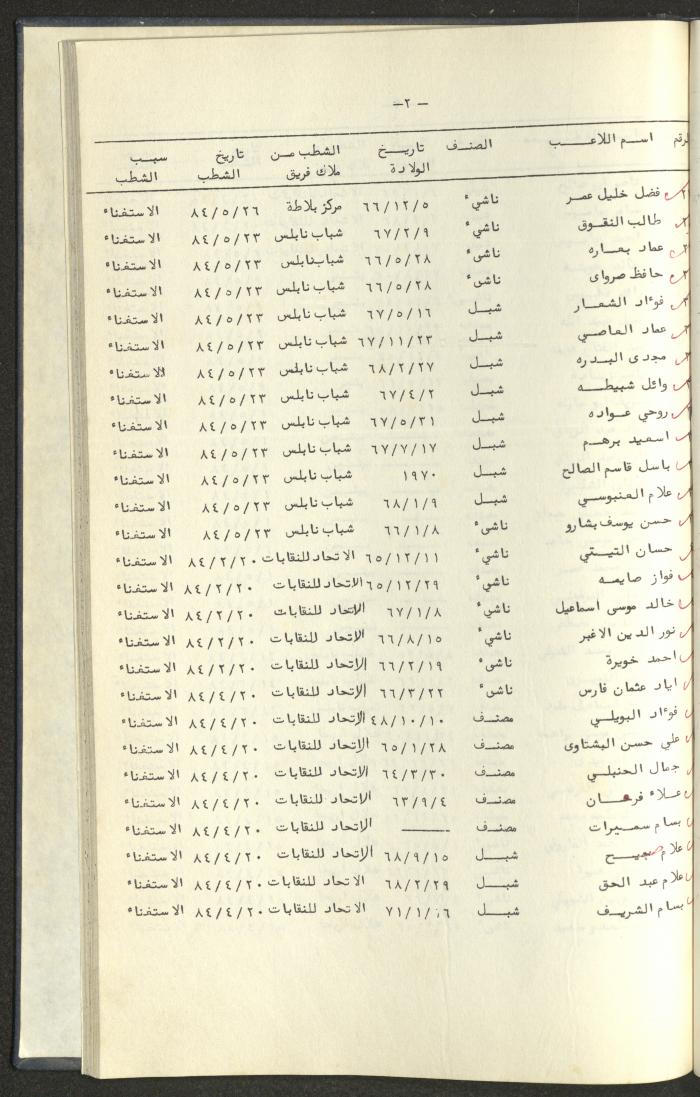 -٢-
الرقم اسم اللاعب الصنف تاريخ الولادة الشطب من ملاك فريق تاريخ الشطب سبب الشطب
فضل خليل عمر ناشيء ٦٦/١٢/٥ مركز بلاطة ٨٤/٥/٢٦ الاستغناء
طالب النقوق ناشيء ٦٧/٢/٩ شباب نابلس ٨٤/٥/٢٣ الاستغناء
عماد بعاره ناشيء ٦٦/٥/٢٨ شباب نابلس ٨٤/٥/٢٣ الاستغناء
حافظ صرواى ناشيء ٦٦/٥/٢٨ شباب نابلس ٨٤/٥/٢٣ الاستغناء
فوءاد الشعار شبل ٦٧/٥/١٦ شباب نابلس ٨٤/٥/٢٣ الاستغناء
عماد العاصي شبل ٦٧/١١/٢٣ شباب نابلس ٨٤/٥/٢٣ الاستغناء
مجدى البدره شبل ٦٨/٢/٢٧ شباب نابلس ٨٤/٥/٢٣ الاستغناء
وائل شبيطه شبل ٦٧/٤/٢ شباب نابلس ٨٤/٥/٢٣ الاستغناء
روحي عواده شبل ٦٧/٥/٣١ شباب نابلس ٨٤/٥/٢٣ الاستغناء
اسعيد برهم شبل ٦٧/٧/١٧ شباب نابلس ٨٤/٥/٢٣ الاستغناء
باسل قاسم الصالح شبل ١٩٧٠ شباب نابلس ٨٤/٥/٢٣ الاستغناء
علام العنبوسي شبل ٦٨/١/٩ شباب نابلس ٨٤/٥/٢٣ الاستغناء
حسن يوسف بشارو ناشىء ٦٦/١/٨ شباب نابلس ٨٤/٥/٢٣ الاستغناء
حسان التيتي ناشيء ٦٥/١٢/١١ الاتحاد للنقابات ٨٤/٢/٢٠ الاستغناء
فواز صايمه ناشيء ٦٥/١٢/٢٩ الاتحاد للنقابات ٨٤/٢/٢٠ الاستغناء
خالد موسى اسماعيل ناشيء ٦٧/١/٨ الاتحاد للنقابات ٨٤/٢/٢٠ الاستغناء
نور الدين الاغبر ناشيء ٦٦/٨/١٥ الاتحاد للنقابات ٨٤/٢/٢٠ الاستغناء
احمد خويرة ناشىء ٦٦/٢/١٩ الاتحاد للنقابات ٨٤/٢/٢٠ الاستغناء
اياد عثمان فارس ناشىء ٦٦/٣/٢٢ الاتحاد للنقابات ٨٤/٤/٢٠ الاستغناء
فوءاد البويلي مصنف ٤٨/١٠/١٠ الاتحاد للنقابات ٨٤/٤/٢٠ الاستغناء
علي حسن البشتاوى مصنف ٦٥/١/٢٨ الاتحاد للنقابات ٨٤/٤/٢٠ الاستغناء
جمال الحنبلي مصنف ٦٤/٣/٣٠ الاتحاد للنقابات ٨٤/٤/٢٠ الاستغناء
علاء فرحان مصنف ٦٣/٩/٤ الاتحاد للنقابات ٨٤/٤/٢٠ الاستغناء
بسام سميرات مصنف ــــــ الاتحاد للنقابات ٨٤/٤/٢٠ الاستغناء
علام شبل ٦٨/٩/١٥ الاتحاد للنقابات ٨٤/٤/٢٠ الاستغناء
علام عبد الحق شبل ٦٨/٢/٢٩ الاتحاد للنقابات ٨٤/٤/٢٠ الاستغناء
بسام الشريف شبل ٧١/١/٠٦ الاتحاد للنقابات ٨٤/٤/٢٠ الاستغناء